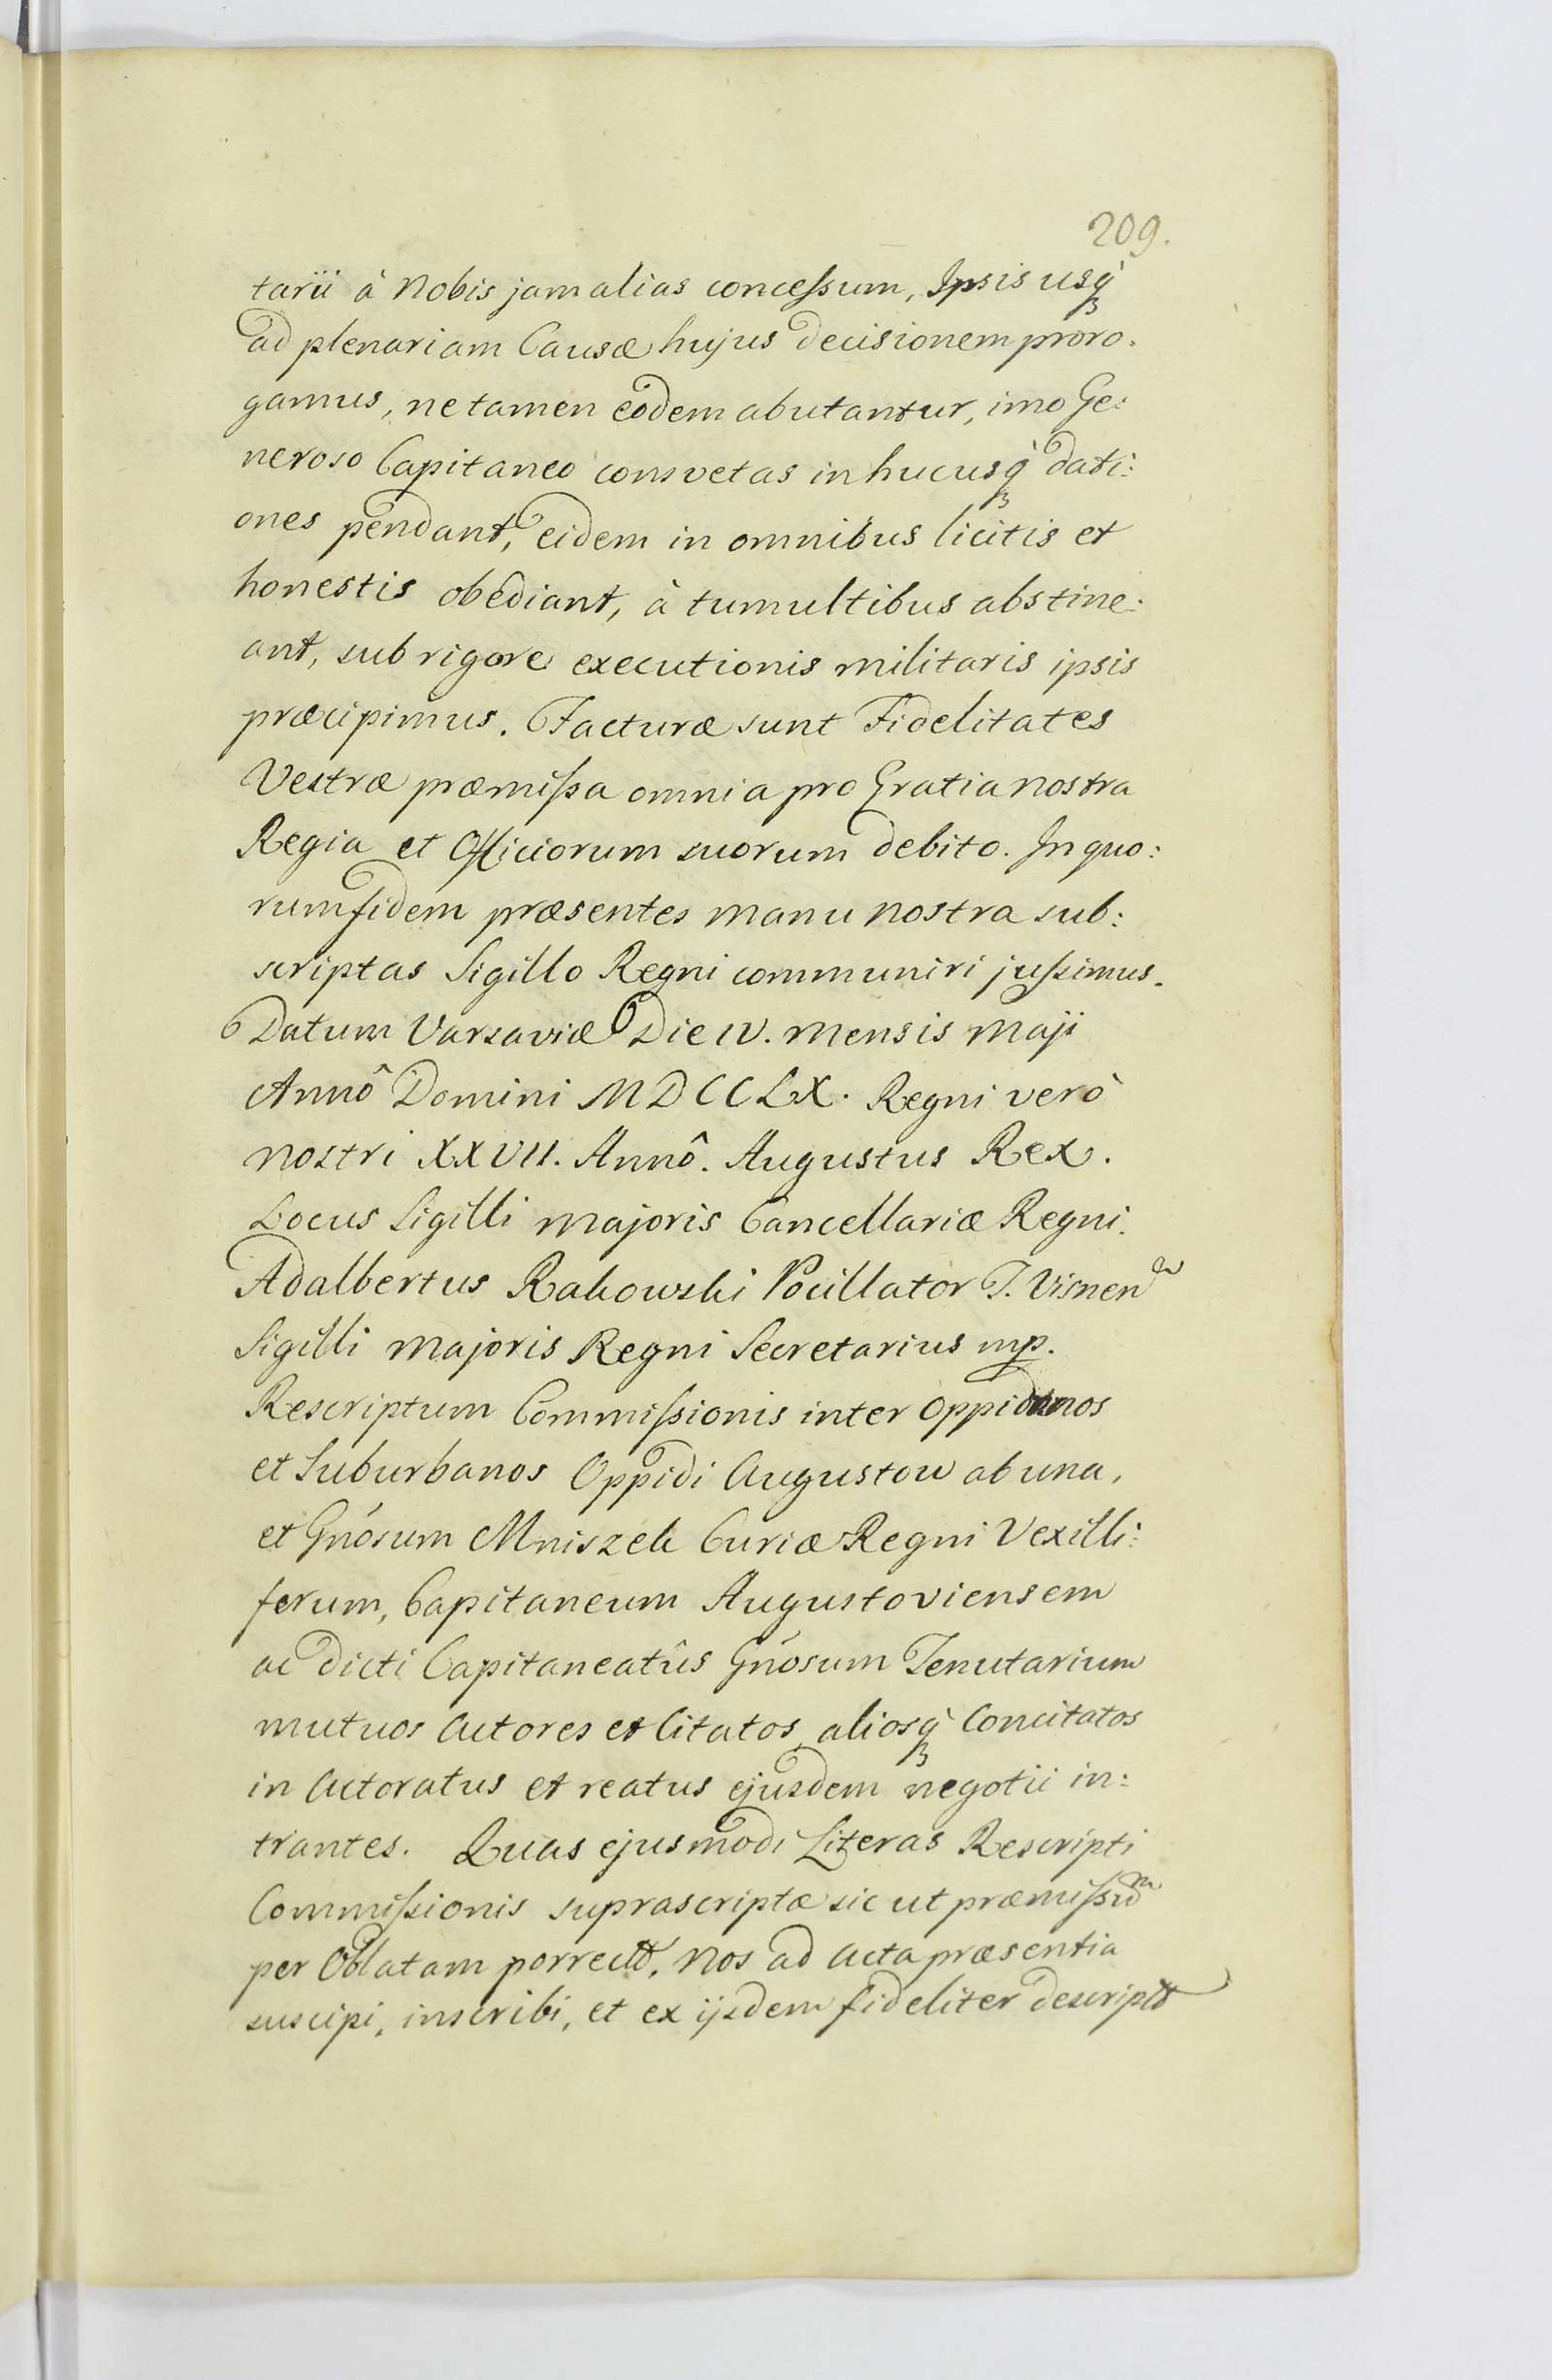 209.
tarii à Nobis jam alias concessum, Ipsis usq̀ꝫ
ad plenariam Causæ hujus decisionem proro.
gamus, ne tamen eodem abutantur, imo Ge:
neroso Capitaneo consvetas in hucusq̀ꝫ dati:
ones pendant, eidem in omnibus licitis et
honestis obediant, à tumultibus abstine:
ant, sub rigore executionis militaris ipsis
præcipimus. Facturæ sunt Fidelitates
Vestræ præmissa omnia pro Gratia nostra
Regia et Officiorum suorum debito. In quo:
rum fidem præsentes manu nostra sub:
scriptas Sigillo Regni communiri jussimus.
Datum Varsaviæ Die IV. Mensis Maji
Annô Domini MDCCLX. Regni verò
nostri XXVII. Annô. Augustus Rex.
Locus Sigilli majoris Cancellariæ Regni.
Adalbertus Rakowski Pocillator T. Visnen
Sigilli Majoris Regni Secretarius mp.
Rescriptum Commissionis inter Oppidanos
et Suburbanos Oppidi Augustow ab una,
et Gńosum Mniszek Curiæ Regni Vexilli:
ferum, Capitaneum Augustoviensem
ac dicti Capitaneatûs Gńosum Tenutarium
mutuos Actores et Citatos, aliosq̀ꝫ Concitatos
in Actoratus et reatus ejusdem negotii in:
trantes. Quas ejusmodi Literas Rescripti
Commissionis suprascriptæ sic ut præmissũ
per Oblatam porrect, Nos ad Acta præsentia
suscipi, inscribi, et ex ijsdem fideliter descript